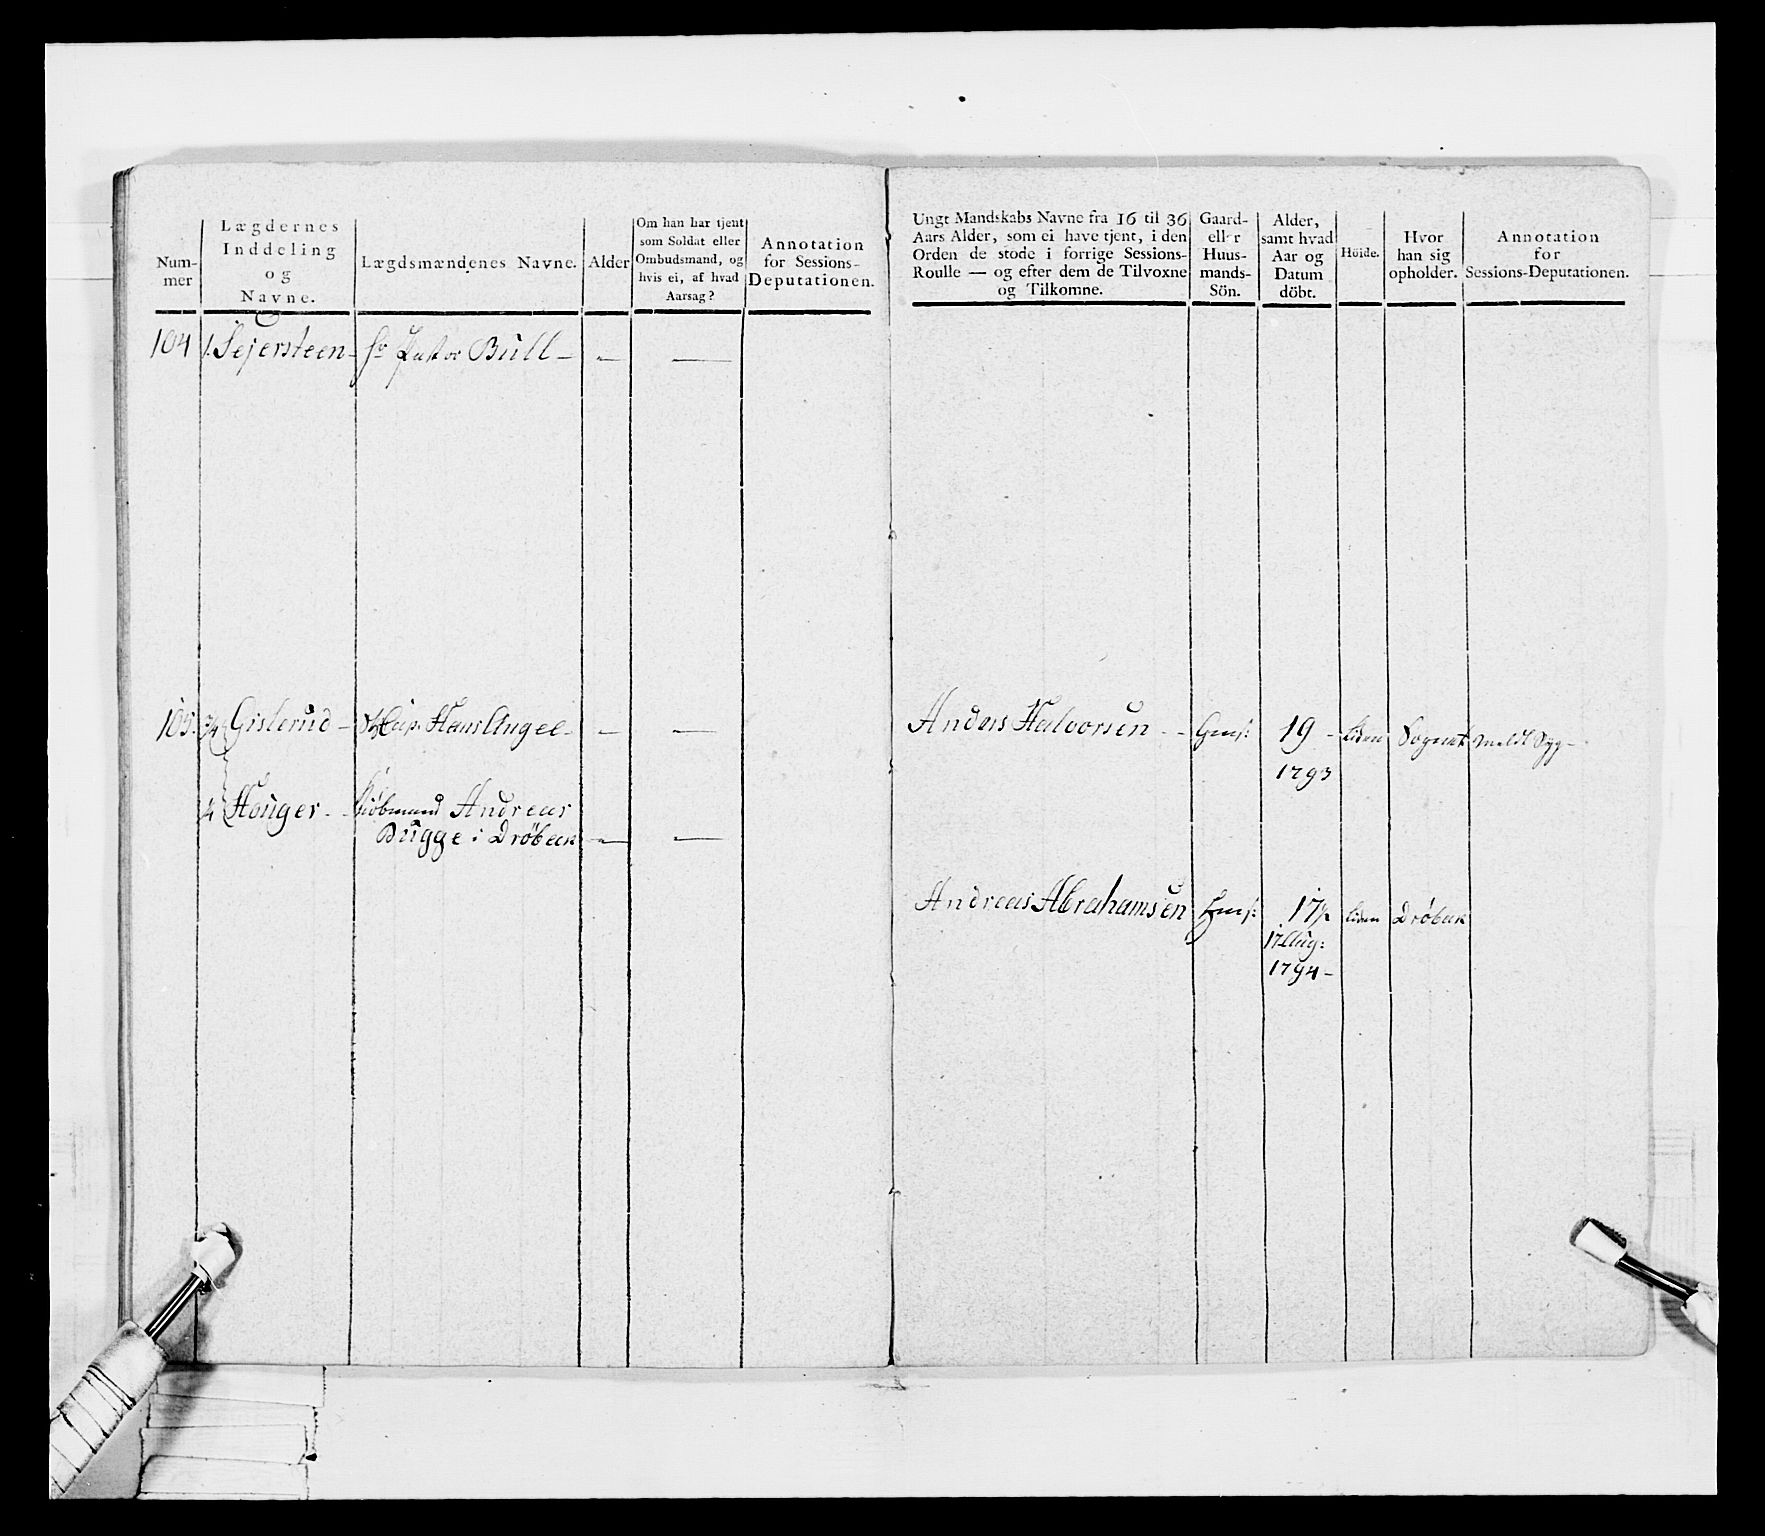 Num-
mer
Lægdernes
Inddeling
og
Navne.
Lægdsmændenes Navne.
Alder
Om han har tjent
som Soldat eller
Ombudsmand, og
hvis ei, af hvad
Aarsag?
Annotation
for Sessions-
Deputationen.
Ungt Mandskabs Navne fra 16 til 36
Aars Alder, som ei have tjent, i den
Orden de stode i forrige Sessions-
Roulle — og efter dem de Tilvoxne
og Tilkomne.
Gaard-
eller
Huus-
mands-
Sön.
Alder,
samt hvad
Aar og
Datum
döbt.
Höide.
Hvor
han sig
opholder.
Annotation
for
Sessions-Deputationen.
104 1. Sejersteen - Hr Pastor Bull - - —
105. 3/4 Gislerud - Hans Angel - - —
Anders Halvorsen - - Hms: 19 - liden Sognet meldt Syg -
1793
1/4 Houger - - Kiöbmand Andreas
Bugge i Dröbak - —
Andreas Abrahamsen Hms: 17 1/2 liden Dröbak
17 Aug:
1794 -